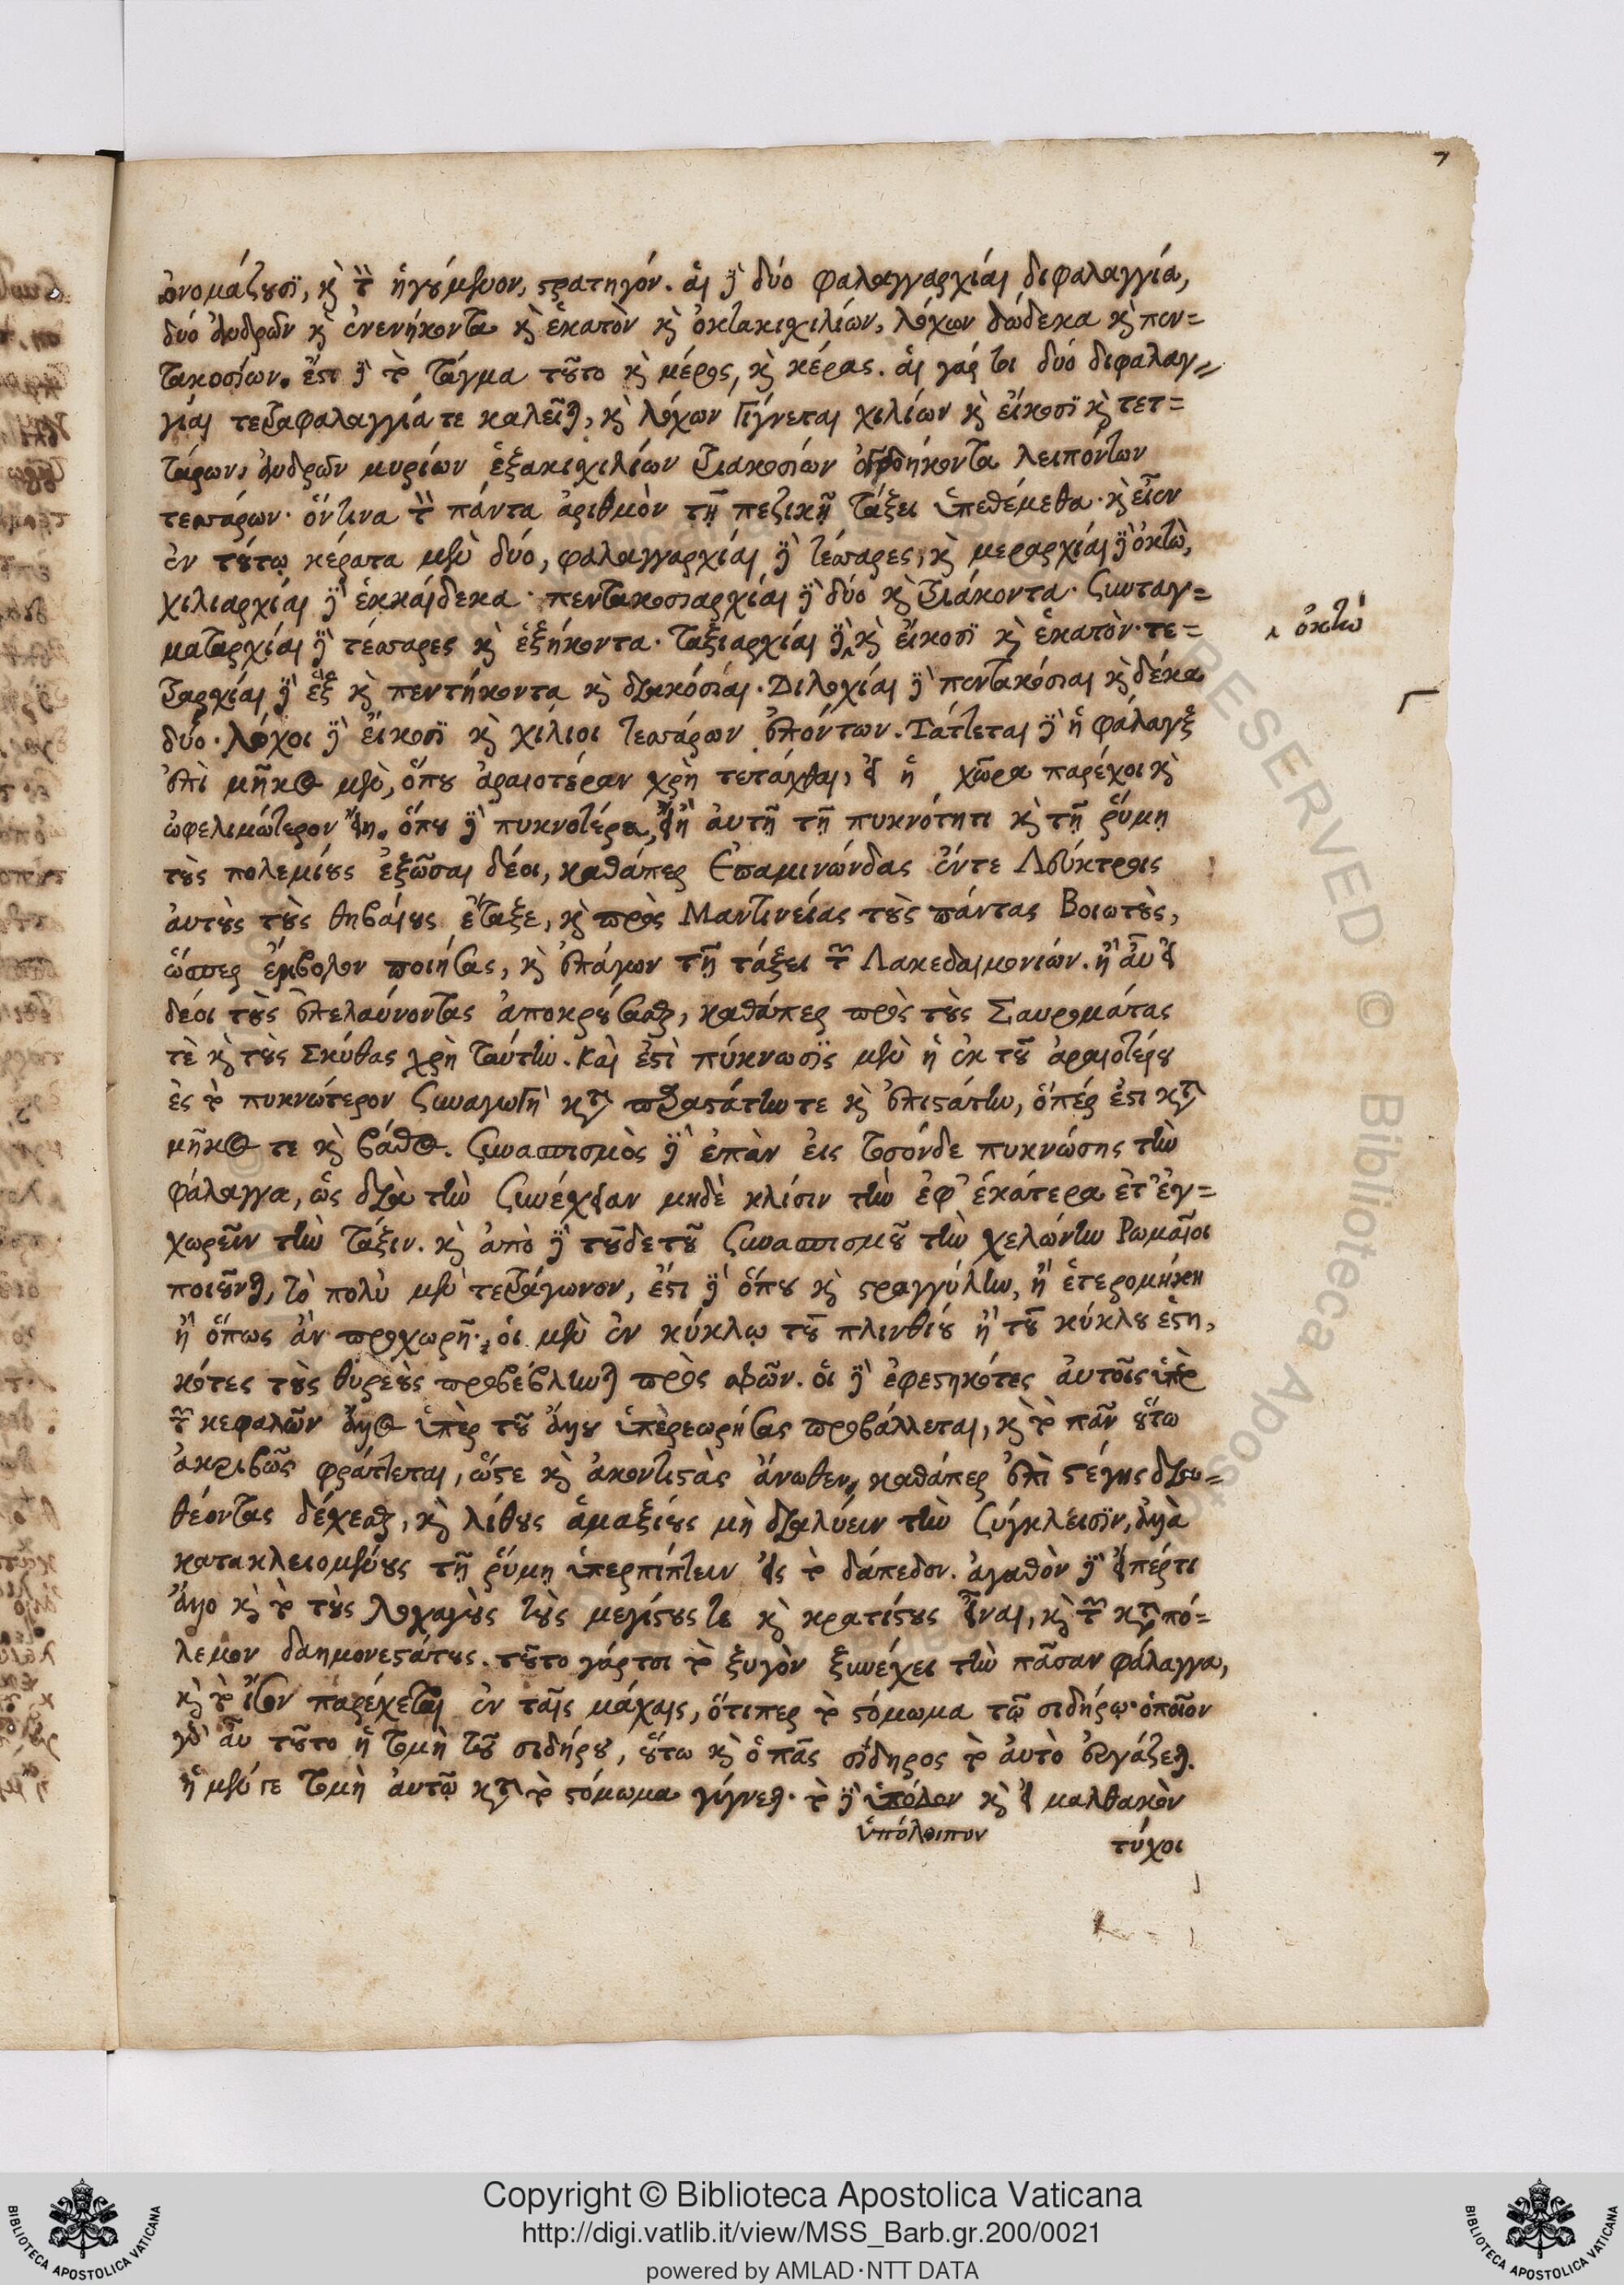 7
ὀνομάζουσι, καὶ τὸν ἡγούμενον, στρατηγόν. αἱ δὲ δύο φαλαγγαρχίαι διφαλαγγία,
δύο ἀνδρῶν καὶ ἐνενήκοντα καὶ ἑκατὸν καὶ ὀκτακισχιλίων, λόχων δώδεκα καὶ πεν=
τακοσίων. ἔστι δὲ τὸ τάγμα τοῦτο καὶ μέρος, καὶ κέρας. αἱ γάρ τοι δύο διφαλαγ=
γίαι τετραφαλαγγία τε καλεῖται, καὶ λόχων γίγνεται χιλίων καὶ εἴκοσι καὶ τετ=
τάρων, ἀνδρῶν μυρίων ἑξακισχιλίων τριακοσίων ὀγδοήκοντα λειπόντων
τεσσάρων. ὅντινα τὸν πάντα ἀριθμὸν τῇ πεζικῇ τάξει ὑπεθέμεθα. καὶ εἶεν
ἐν τούτῳ κέρατα μὲν δύο, φαλαγγαρχίαι δὲ τέσσαρες, καὶ μεραρχίαι δὲ ὀκτὼ,
χιλιαρχίαι δὲ ἑκκαίδεκα. πεντακοσιαρχίαι δὲ δύο καὶ τριάκοντα. συνταγ=
ματαρχίαι δὲ τέσσαρες καὶ ἑξήκοντα. ταξιαρχίαι δὲ καὶ εἴκοσι καὶ ἑκατόν. τε=
⁁ ὀκτὼ
τραρχίαι δὲ ἓξ καὶ πεντήκοντα καὶ διακόσιαι. Διλοχίαι δὲ πεντακόσιαι καὶ δέκα
δύο. λόχοι δὲ εἴκοσι καὶ χίλιοι τεσσάρων ἐπόντων. Τάττεται δὲ ἡ φάλαγξ
ἐπὶ μῆκος μὲν, ὅπου ἀραιοτέραν χρὴ τετάχθαι, εἰ ἡ χῶρα παρέχοι καὶ
ὠφελιμώτερον εἴη. ὅπου δὲ πυκνοτέρα, εἰ ἢ αὐτῇ τῇ πυκνότητι καὶ τῇ ῥύμῃ
τοὺς πολεμίους ἐξῶσαι δέοι, καθάπερ Ἐπαμινώνδας ἔν τε Λεύκτροις
αὐτοὺς τοὺς θηβαίους ἔταξε, καὶ πρὸς Μαντινείας τοὺς πάντας Βοιωτοὺς,
ὥσπερ ἔμβολον ποιήσας, καὶ ἐπάγων τῇ τάξει τῶν Λακεδαιμονίων. ἢ αὖ εἰ
δέοι τοὺς ἐπελαύνοντας ἀποκρούσασθαι, καθάπερ πρὸς τοὺς Σαυρομάτας
τὲ καὶ τοὺς Σκύθας χρὴ ταύτην. Καὶ ἐστὶ πύκνωσις μὲν ἡ ἐκ τοῦ ἀραιοτέρου
ἐς τὸ πυκνώτερον συναγωγὴ κατὰ παραστάτην τε καὶ ἐπιστάτην, ὅπέρ ἐστι κατὰ
μῆκος τε καὶ βάθος. συνασπισμὸς δὲ ἐπὰν εἰς τοσόνδε πυκνώσῃς τὴν
φάλαγγα, ὡς διὰ τὴν συνέχειαν μηδὲ κλίσιν τὴν ἐφ' ἑκάτερα ἔτ' ἐγ=
χωρεῖν τὴν τάξιν. καὶ ἀπὸ δὲ τοῦδε τοῦ συνασπισμοῦ τὴν χελώνην Ῥωμαῖοι
ποιοῦνται, τὸ πολὺ μὲν τετράγωνον, ἔστι δὲ ὅπου καὶ στραγγύλην, ἢ ἑτερομήκη
ἢ ὅπως ἂν προχωρῇ. οἱ μὲν ἐν κύκλῳ τοῦ πλινθίου ἢ τοῦ κύκλου ἑστη,
κότες τοὺς θυρεοὺς προβέβληνται πρὸς αφῶν. οἱ δὲ ἐφεστηκότες αὐτοῖς ὑπὲρ
τῶν κεφαλῶν ἄλλος ὑπὲρ τοῦ ἄλλου ὑπερεωρήσας προβάλλεται, καὶ τὸ πᾶν οὕτω
ἀκριβῶς φράττεται, ὥστε καὶ ἀκοντιστὰς ἄνωθεν, καθάπερ ἐπὶ στέγης δια=
θέοντας δέχεσθαι, καὶ λίθους ἁμαξίους μὴ διαλύειν τὴν ξύγκλεισιν, ἀλλὰ
κατακλειομένους τῇ ῥύμῃ ὑπερπίπτειν εἰς τὸ δάπεδον. ἀγαθὸν δὲ εἴπέρ τι
ἄλλο καὶ τὸ τοὺς λοχαγοὺς τοὺς μεγίστους τε καὶ κρατίστους εἶναι, καὶ τῶν κατὰ πό=
λεμον δαημονεστάτους. τοῦτο γάρ τοι τὸ ξυγὸν ξυνέχει τὴν πᾶσαν φάλαγγα,
καὶ τὸ ἴσον παρέχεται ἐν ταῖς μάχαις, ὅτιπερ τὸ στόμωμα τῷ σιδήρῳ. ὁποῖον
γὰρ ἂν τοῦτο ἡ τομὴ τοῦ σιδήρου, οὕτω καὶ ὁ πᾶς σίδηρος τὸ αὐτὸ ἐργάζεται.
ἡ μὲν γε τομὴ αὐτῷ κατὰ τὸ στόμωμα γίγνεται. τὸ δὲ ὑπόλον καὶ εἰ μαλθακὸν
ὑπόλοιπον
τύχοι
RESERVED © Biblioteca Apostolica
Copyright © Biblioteca Apostolica Vaticana
http://digi.vatlib.it/view/MSS_Barb.gr.200/0021
powered by AMLAD·NTT DATA
BIBLIOTECA APOSTOLICA VATICANA
BIBLIOTECA APOSTOLICA VATICANA